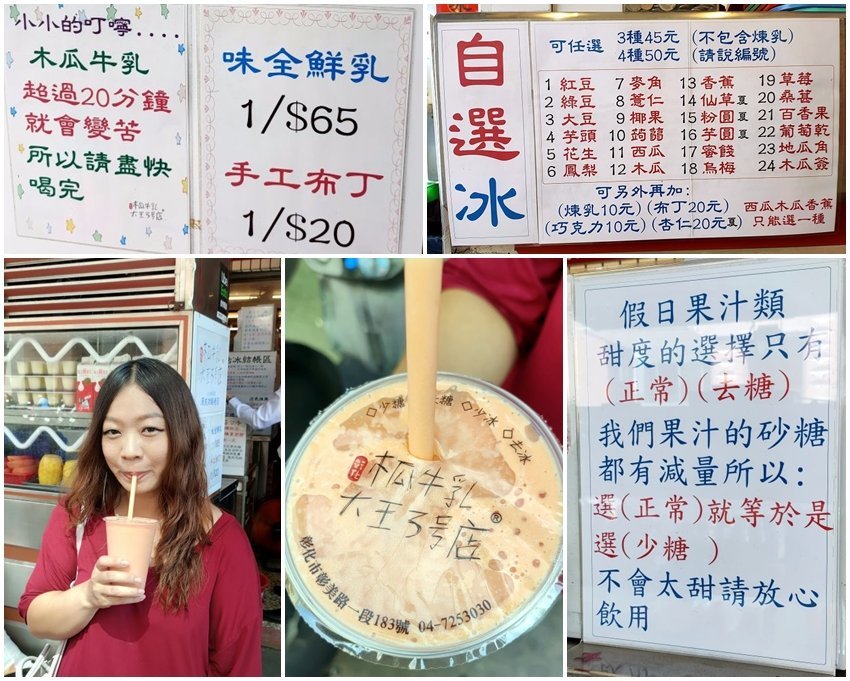 小小的叮嚀....
木瓜牛乳
超過20分鐘
就會變苦
所以請盡快
喝完
木瓜牛乳
大王3號店
味全鮮乳
1/$65
手工布丁
1/$20
自選冰
可任選 3種45元 (不包含煉乳)
4種50元 (請說編號)
1 紅豆 7 麥角 13 香蕉 19 草莓
2 綠豆 8 薏仁 14 仙草夏 20 桑葚
3 大豆 9 椰果 15 粉圓夏 21 百香果
4 芋頭 10 蒟蒻 16 芋圓夏 22 葡萄乾
5 花生 11 西瓜 17 蜜餞 23 地瓜角
6 鳳梨 12 木瓜 18 烏梅 24 木瓜簽
可另外再加:
(煉乳10元) (布丁20元)
(巧克力10元) (杏仁20元夏)
西瓜木瓜香蕉
只能選一種
冰結帳區
□少糖 □少冰 □去冰
木瓜牛乳
大王3号店®
彰化市彰美路一段183號 04-7253030
假日果汁類
甜度的選擇只有
(正常)(去糖)
我們果汁的砂糖
都有減量所以:
選(正常)就等於是
選(少糖 )
不會太甜請放心
飲用